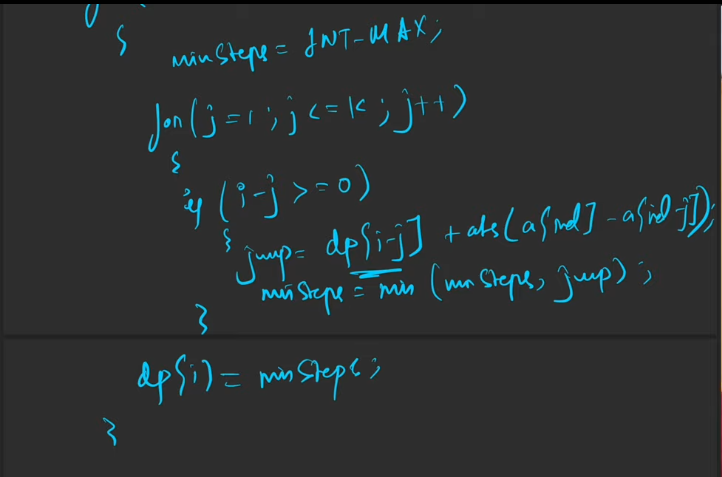 {
minSteps = INT-MAX;
for(j=1; j<=K; j++)
{
if (i-j >=0)
{
jump= dp[i-j] + abs(a[ind] - a[ind-j]);
minSteps = min (minSteps, jump);
}
dp[i] = minSteps;
}